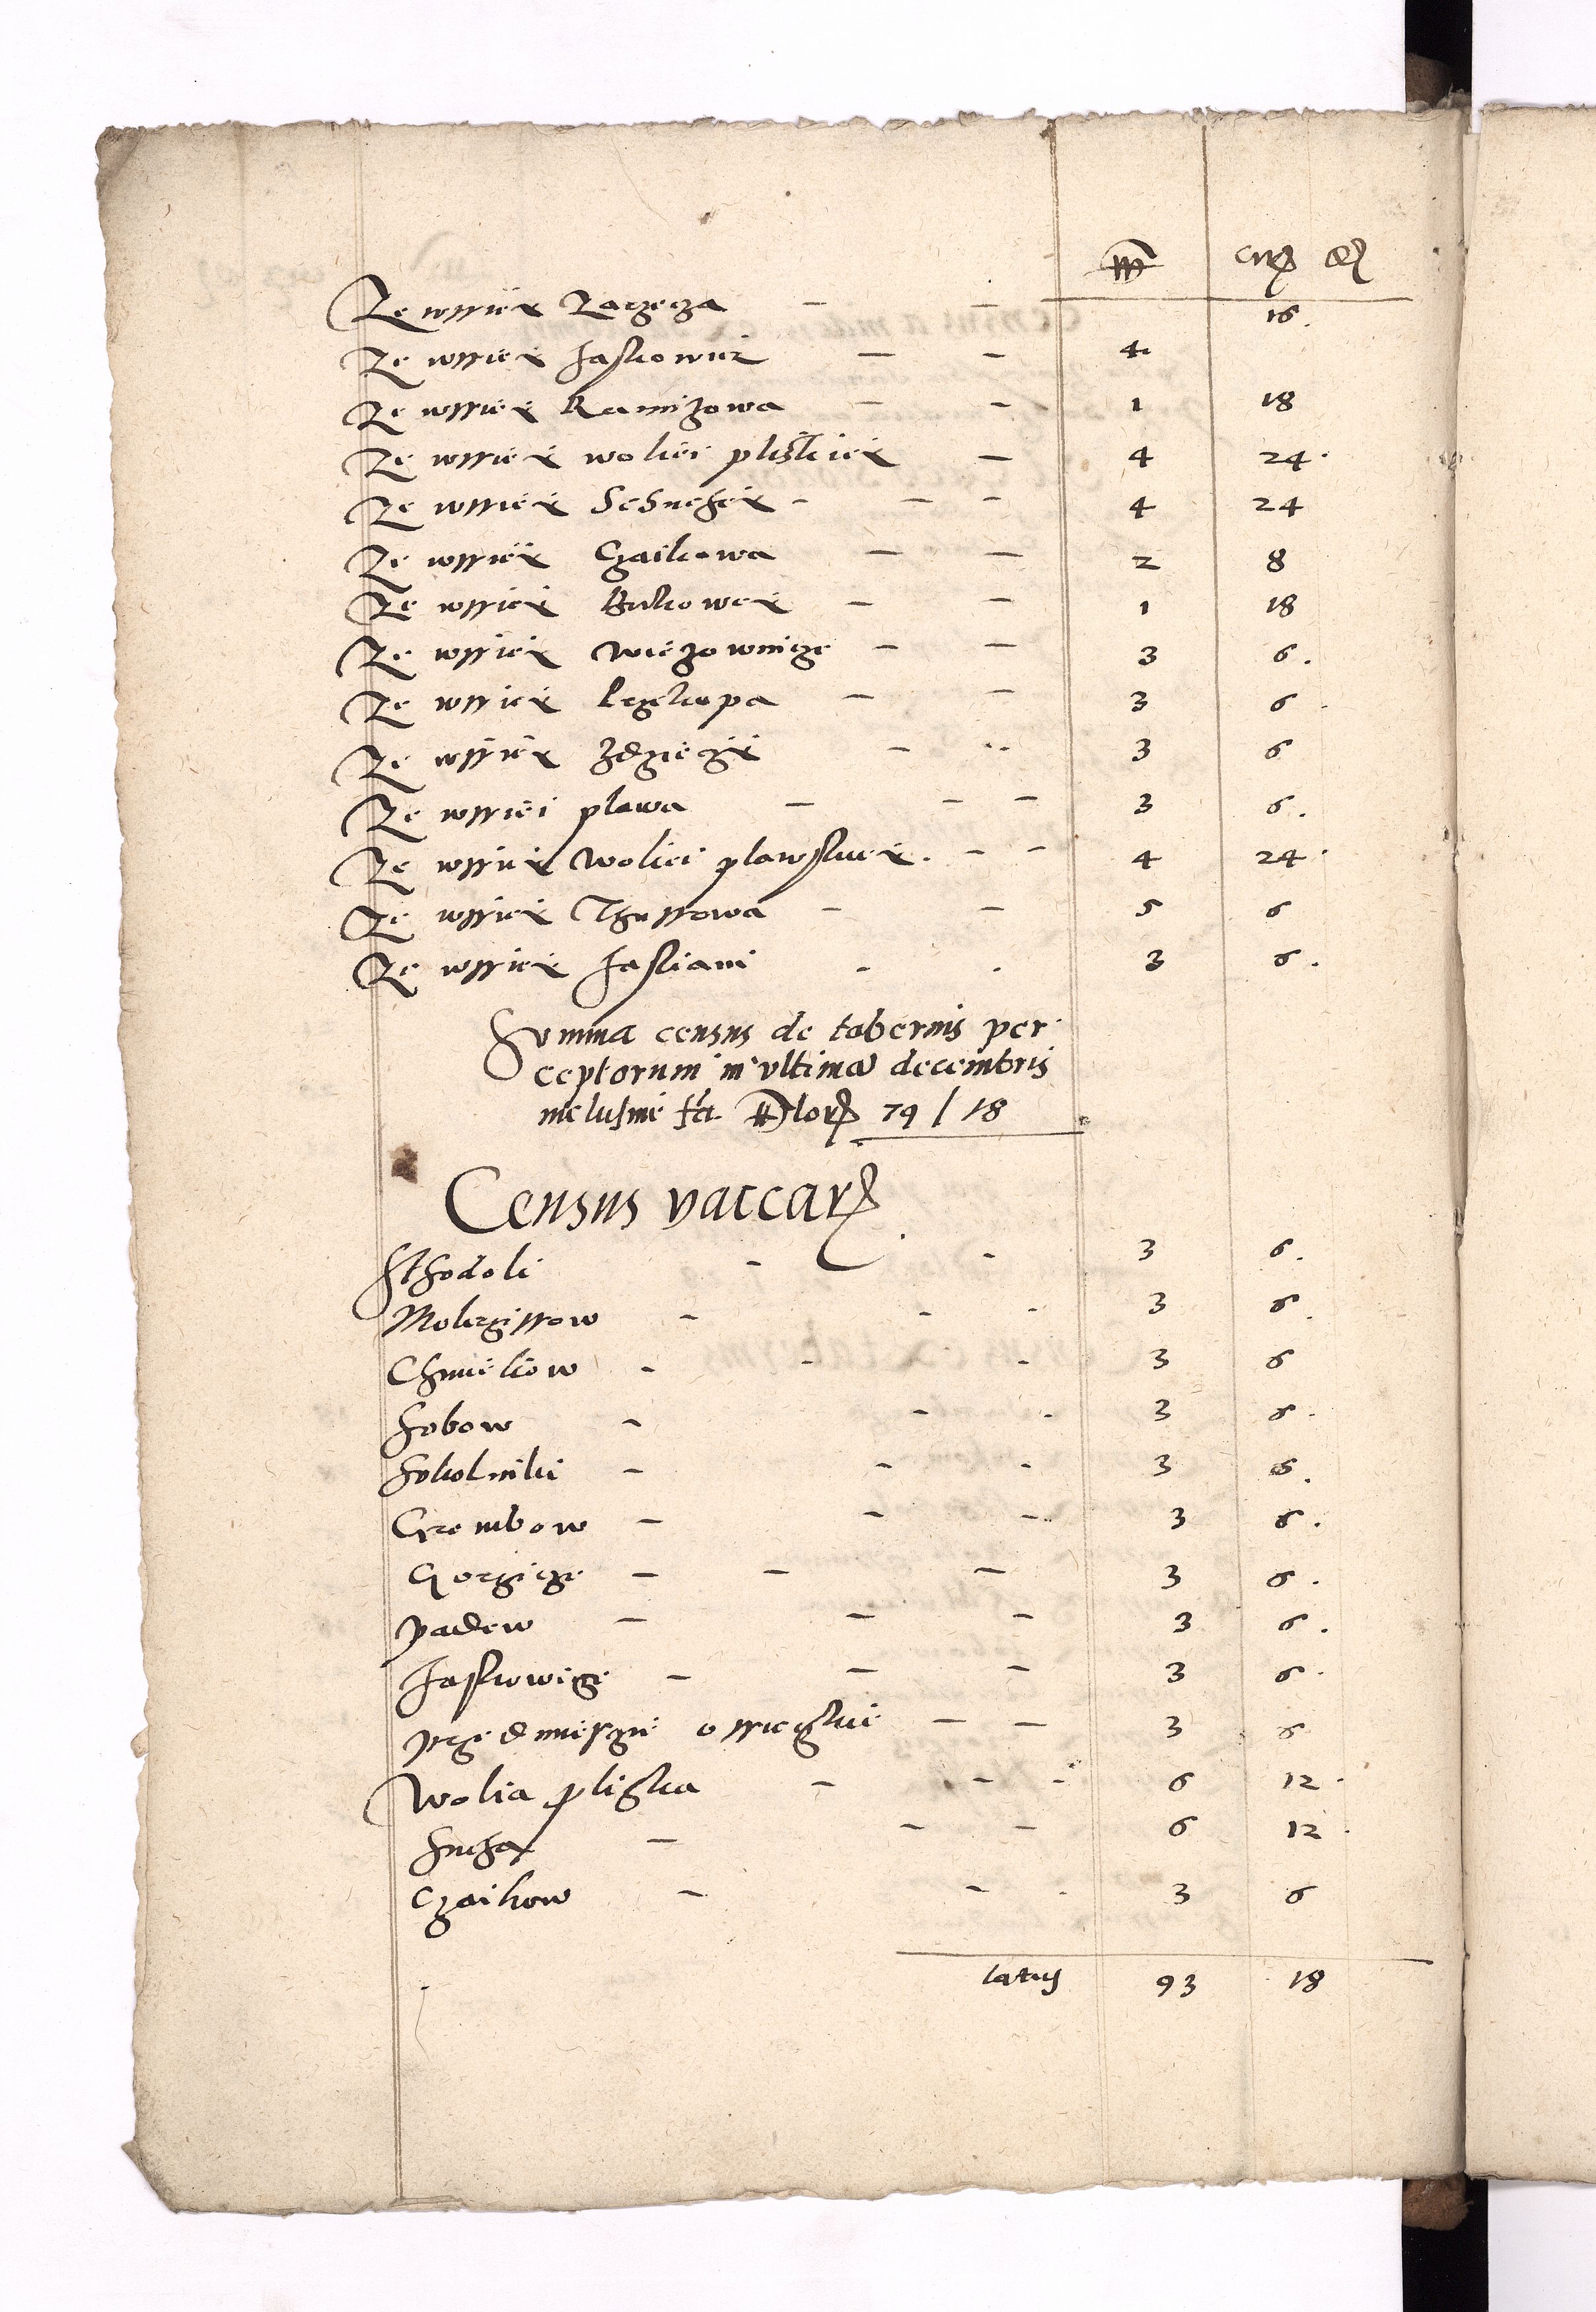 Ze wssiei Zarzecza — — 16.
Ze wssiei Jaskowicz — — 4
Ze wssiei Kamizowa — — 1 18
Ze wssiei woliei pliskiei — 4 24.
Ze wssiei — — 4 24
Ze wssiei Czaikowa — — 2 8
Ze wssiei Bukowei — — 1 18
Ze wssiei wiezownicze — — 3 6.
Ze wssiei — — 3 6
Ze wssiei — 3 6
Ze wssiei plawa — — — 3 6.
Ze wssiei Woliei plawskiei. — — 4 24.
Ze wssiei Thurowa — — 5 6
Ze wssiei Jasliani — . 3 6.
Summa census de tabernis per
ceptorum in ultima decembris
inclusive fct 79 / 18
Census vaccar
Sthodoli — — 3 6.
Mokrzissow — — — 3 6.
Chmielow — — — 3 6
Sobow — — . 3 6.
Sokolniki — — — 3 6.
Grembow — — — 3 6.
Gorzicze — — — 3 6.
padew — — — 3 6.
Jaskowicze — — — 3 6.
przedmiescie — — 3 6
Wolia pliska — — — 6 12.
Sucha — — — 6 12.
Czaikow — — . 3 6
latus 93 18